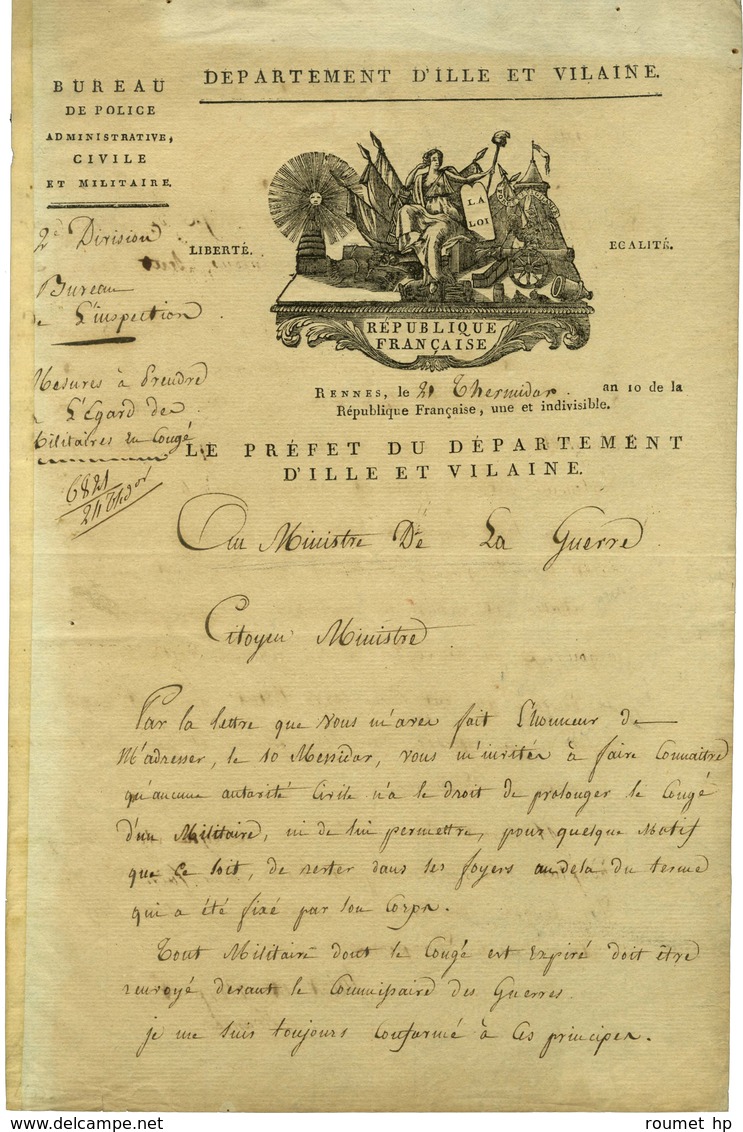 DEPARTEMENT D'ILLE ET VILAINE.
BUREAU
DE POLICE
ADMINISTRATIVE,
CIVILE
ET MILITAIRE.
2e Division
Bureau
de L'inspection
Mesures à Prendre
à L'Egard des
Militaires En Congé
6821
24 Thdor
LIBERTÉ.
EGALITÉ.
LA
LOI
RÉPUBLIQUE
FRANÇAISE
RENNES, le 21 Thermidor. an 10 de la
République Française, une et indivisible.
LE PRÉFET DU DÉPARTEMENT
D'ILLE ET VILAINE.
Au Ministre De La Guerre
Citoyen Ministre
Par la lettre que vous m'avez fait L'honneur de
M'adresser, le 10 Messidor, vous m'invités à faire Connaitre
qu'aucune autorité Civile n'a le droit de prolonger le Congé
d'un Militaire, ni de lui permettre, pour quelque Motif
que ce soit, de rester dans ses foyers audela du terme
qui a été fixé par son Corps.
Tout Militaire dont le Congé est Expiré doit être
renvoyé devant le Commissaire des Guerres.
je me suis toujours Conformé à Ces principes.
roumet hp